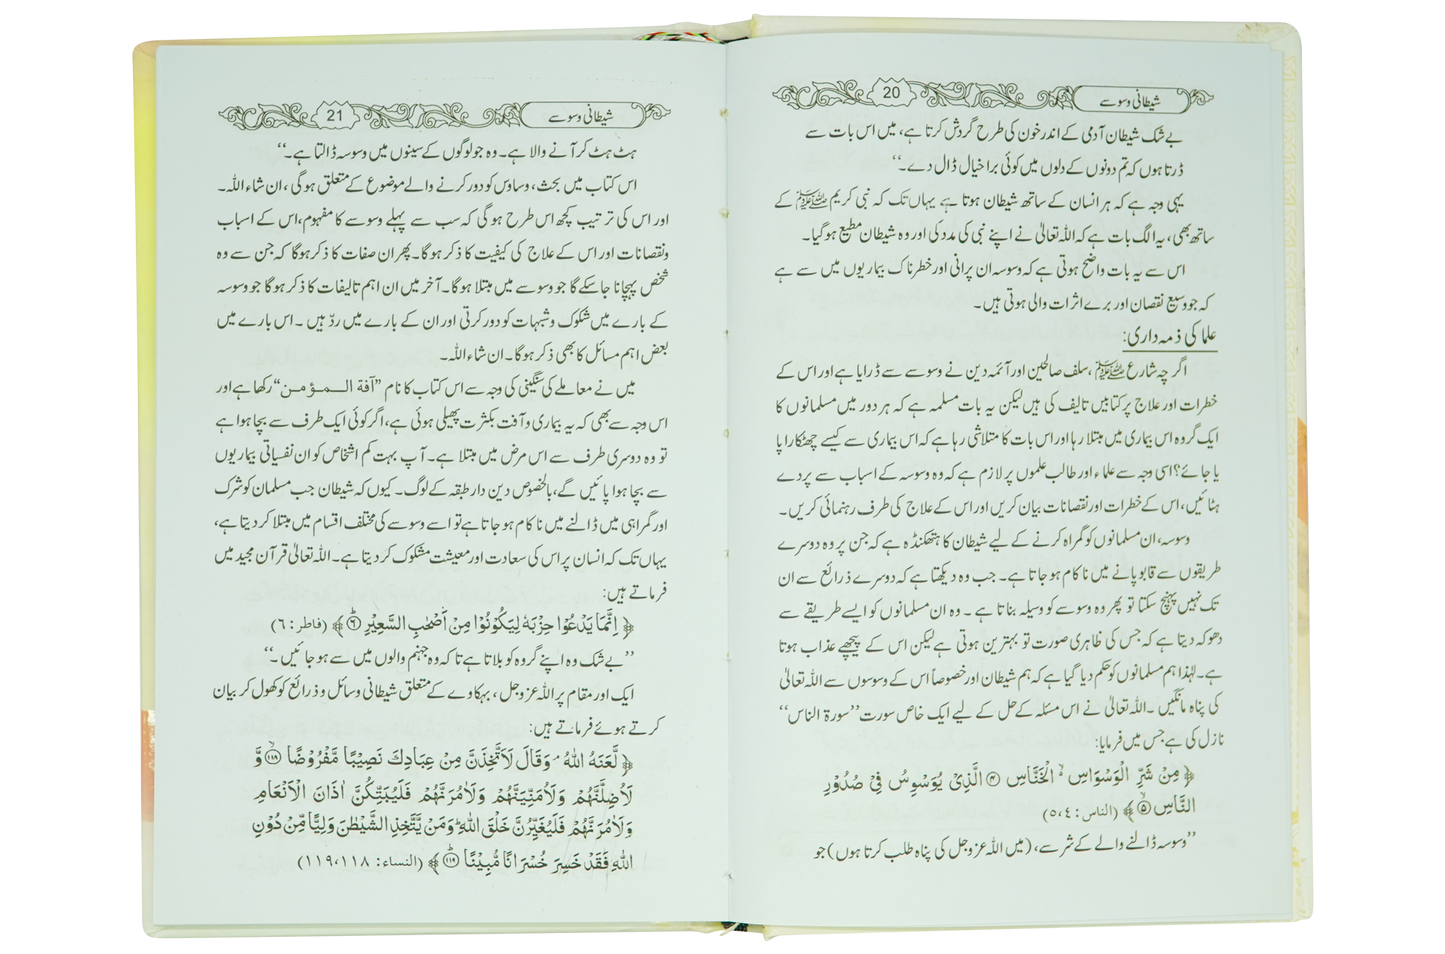 شیطانی وسوسے
20
بے شک شیطان آدمی کے اندر خون کی طرح گردش کرتا ہے، میں اس بات سے
ڈرتا ہوں کہ تم دونوں کے دلوں میں کوئی برا خیال ڈال دے۔‘‘
یہی وجہ ہے کہ ہر انسان کے ساتھ شیطان ہوتا ہے یہاں تک کہ نبی کریم ﷺ کے
ساتھ بھی، یہ الگ بات ہے کہ اللہ تعالیٰ نے اپنے نبی کی مدد کی اور وہ شیطان مطیع ہو گیا۔
اس سے یہ بات واضح ہوتی ہے کہ وسوسہ ان پرانی اور خطرناک بیماریوں میں سے ہے
کہ جو وسیع نقصان اور برے اثرات والی ہوتی ہیں۔
علما کی ذمہ داری:
اگرچہ شارع ﷺ، سلف صالحین اور آئمہ دین نے وسوسے سے ڈرایا ہے اور اس کے
خطرات اور علاج پر کتابیں تالیف کی ہیں لیکن یہ بات مسلمہ ہے کہ ہر دور میں مسلمانوں کا
ایک گروہ اس بیماری میں مبتلا رہا اور اس بات کا متلاشی رہا ہے کہ اس بیماری سے کیسے چھٹکارا پا
یا جائے؟ اسی وجہ سے علماء اور طالب علموں پر لازم ہے کہ وہ وسوسہ کے اسباب سے پردے
ہٹائیں، اس کے خطرات اور نقصانات بیان کریں اور اس کے علاج کی طرف رہنمائی کریں۔
وسوسہ، ان مسلمانوں کو گمراہ کرنے کے لیے شیطان کا ہتھکنڈہ ہے کہ جن پر وہ دوسرے
طریقوں سے قابو پانے میں ناکام ہو جاتا ہے۔ جب وہ دیکھتا ہے کہ دوسرے ذرائع سے ان
تک نہیں پہنچ سکتا تو پھر وہ وسوسہ کو وسیلہ بناتا ہے۔ وہ ان مسلمانوں کو ایسے طریقے سے
دھوکہ دیتا ہے کہ جس کی ظاہری صورت تو بہترین ہوتی ہے لیکن اس کے پیچھے عذاب ہوتا
ہے۔ لہٰذا ہم مسلمانوں کو حکم دیا گیا ہے کہ ہم شیطان اور خصوصاً اس کے وسوسوں سے اللہ تعالیٰ
کی پناہ مانگیں۔ اللہ تعالیٰ نے اس مسئلہ کے حل کے لیے ایک خاص سورت ’’سورۃ الناس‘‘
نازل کی ہے جس میں فرمایا:
﴿ مِنْ شَرِّ الْوَسْوَاسِ الْخَنَّاسِ ﴿۴﴾ الَّذِیْ یُوَسْوِسُ فِیْ صُدُوْرِ
النَّاسِ ﴿۵﴾ ﴾ (الناس: ٤،٥)
’’وسوسہ ڈالنے والے کے شر سے، (میں اللہ عزوجل کی پناہ طلب کرتا ہوں) جو
شیطانی وسوسے
21
ہٹ ہٹ کر آنے والا ہے۔ وہ جو لوگوں کے سینوں میں وسوسہ ڈالتا ہے۔‘‘
اس کتاب میں بحث، وساوس کو دور کرنے والے موضوع کے متعلق ہوگی، ان شاء اللہ۔
اور اس کی ترتیب کچھ اس طرح ہوگی کہ سب سے پہلے وسوسے کا مفہوم، اس کے اسباب
ونقصانات اور اس کے علاج کی کیفیت کا ذکر ہوگا۔ پھر ان صفات کا ذکر ہوگا کہ جن سے وہ
شخص پہچانا جاسکے گا جو وسوسے میں مبتلا ہوگا۔ آخر میں ان اہم تالیفات کا ذکر ہوگا جو وسوسہ
کے بارے میں شکوک وشبہات کو دور کرتی اور ان کے بارے میں ردّ ہیں۔ اس بارے میں
بعض اہم مسائل کا بھی ذکر ہوگا۔ ان شاء اللہ۔
میں نے معاملے کی سنگینی کی وجہ سے اس کتاب کا نام ’’آفة المؤمن‘‘ رکھا ہے اور
اس وجہ سے بھی کہ یہ بیماری و آفت بکثرت پھیلی ہوئی ہے، اگر کوئی ایک طرف سے بچا ہوا ہے
تو وہ دوسری طرف سے اس مرض میں مبتلا ہے۔ آپ بہت کم اشخاص کو ان نفسیاتی بیماریوں
سے بچا ہوا پائیں گے، بالخصوص دین دار طبقہ کے لوگ۔ کیوں کہ شیطان جب مسلمان کو شرک
اور گمراہی میں ڈالنے میں ناکام ہو جاتا ہے تو اسے وسوسے کی مختلف اقسام میں مبتلا کر دیتا ہے،
یہاں تک کہ انسان پر اس کی سعادت اور معیشت مشکوک کر دیتا ہے۔ اللہ تعالیٰ قرآن مجید میں
فرماتے ہیں:
﴿ اِنَّمَا یَدْعُوْا حِزْبَهٗ لِیَكُوْنُوْا مِنْ اَصْحٰبِ السَّعِیْرِ ﴿۶﴾ ﴾ (فاطر: ٦)
’’بے شک وہ اپنے گروہ کو بلاتا ہے تاکہ وہ جہنم والوں میں سے ہو جائیں۔‘‘
ایک اور مقام پر اللہ عزوجل، بہکاوے کے متعلق شیطانی وسائل و ذرائع کو کھول کر بیان
کرتے ہوئے فرماتے ہیں:
﴿ لَّعَنَهُ اللّٰهُ ۘ وَقَالَ لَاَتَّخِذَنَّ مِنْ عِبَادِكَ نَصِیْبًا مَّفْرُوْضًا ﴿۱۱۸﴾ وَّ
لَاُضِلَّنَّهُمْ وَلَاُمَنِّیَنَّهُمْ وَلَاٰمُرَنَّهُمْ فَلَیُبَتِّكُنَّ اٰذَانَ الْاَنْعَامِ
وَلَاٰمُرَنَّهُمْ فَلَیُغَیِّرُنَّ خَلْقَ اللّٰهِ ؕ وَمَنْ یَّتَّخِذِ الشَّیْطٰنَ وَلِیًّا مِّنْ دُوْنِ
اللّٰهِ فَقَدْ خَسِرَ خُسْرَانًا مُّبِیْنًا ﴿۱۱۹﴾ ﴾ (النساء: ١١٨،١١٩)